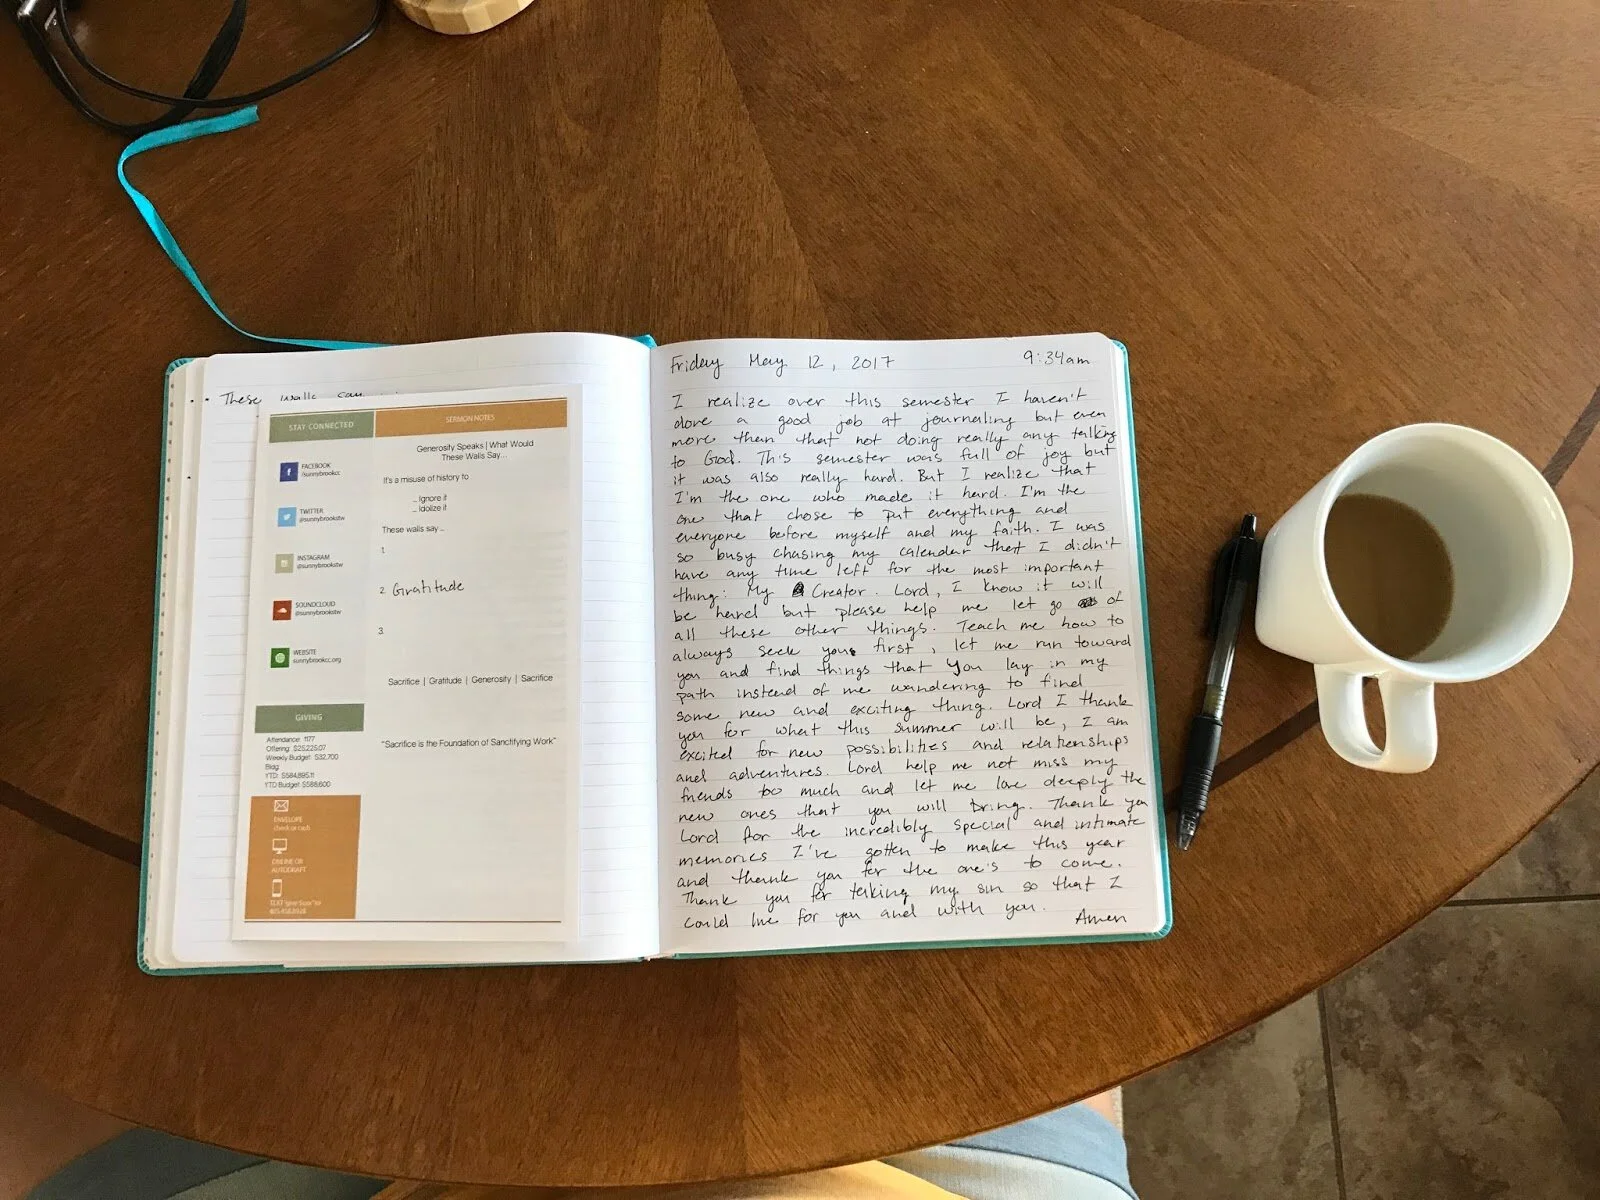 These walls say
STAY CONNECTED
FACEBOOK
/sunnybrookcc
TWITTER
@sunnybrookstw
INSTAGRAM
@sunnybrookstw
SOUNDCLOUD
@sunnybrookstw
WEBSITE
sunnybrookcc.org
GIVING
Attendance: 1177
Offering: $25,225.07
Weekly Budget: $32,700
Bldg
YTD: $584,895.11
YTD Budget: $588,600
ENVELOPE
check or cash
ONLINE OR
AUTODRAFT
SERMON NOTES
Generosity Speaks | What Would
These Walls Say...
It's a misuse of history to
... Ignore it
... Idolize it
These walls say ...
1.
2. Gratitude
3.
Sacrifice | Gratitude | Generosity | Sacrifice
"Sacrifice is the Foundation of Sanctifying Work"
Friday May 12, 2017 9:34am
I realize over this semester I haven't
done a good job at journaling but even
more than that not doing really any talking
to God. This semester was full of joy but
it was also really hard. But I realize that
I'm the one who made it hard. I'm the
one that chose to put everything and
everyone before myself and my faith. I was
so busy chasing my calendar that I didn't
have any time left for the most important
thing: My Creator. Lord, I know it will
be hard but please help me let go of
all these other things. Teach me how to
always seek you first, let me run toward
you and find things that you lay in my
path instead of me wandering to find
some new and exciting thing. Lord I thank
you for what this summer will be, I am
excited for new possibilities and relationships
and adventures. Lord help me not miss my
friends too much and let me love deeply the
new ones that you will bring. Thank you
Lord for the incredibly special and intimate
memories I've gotten to make this year
and thank you for the one's to come.
Thank you for taking my sin so that I
could live for you and with you.
Amen